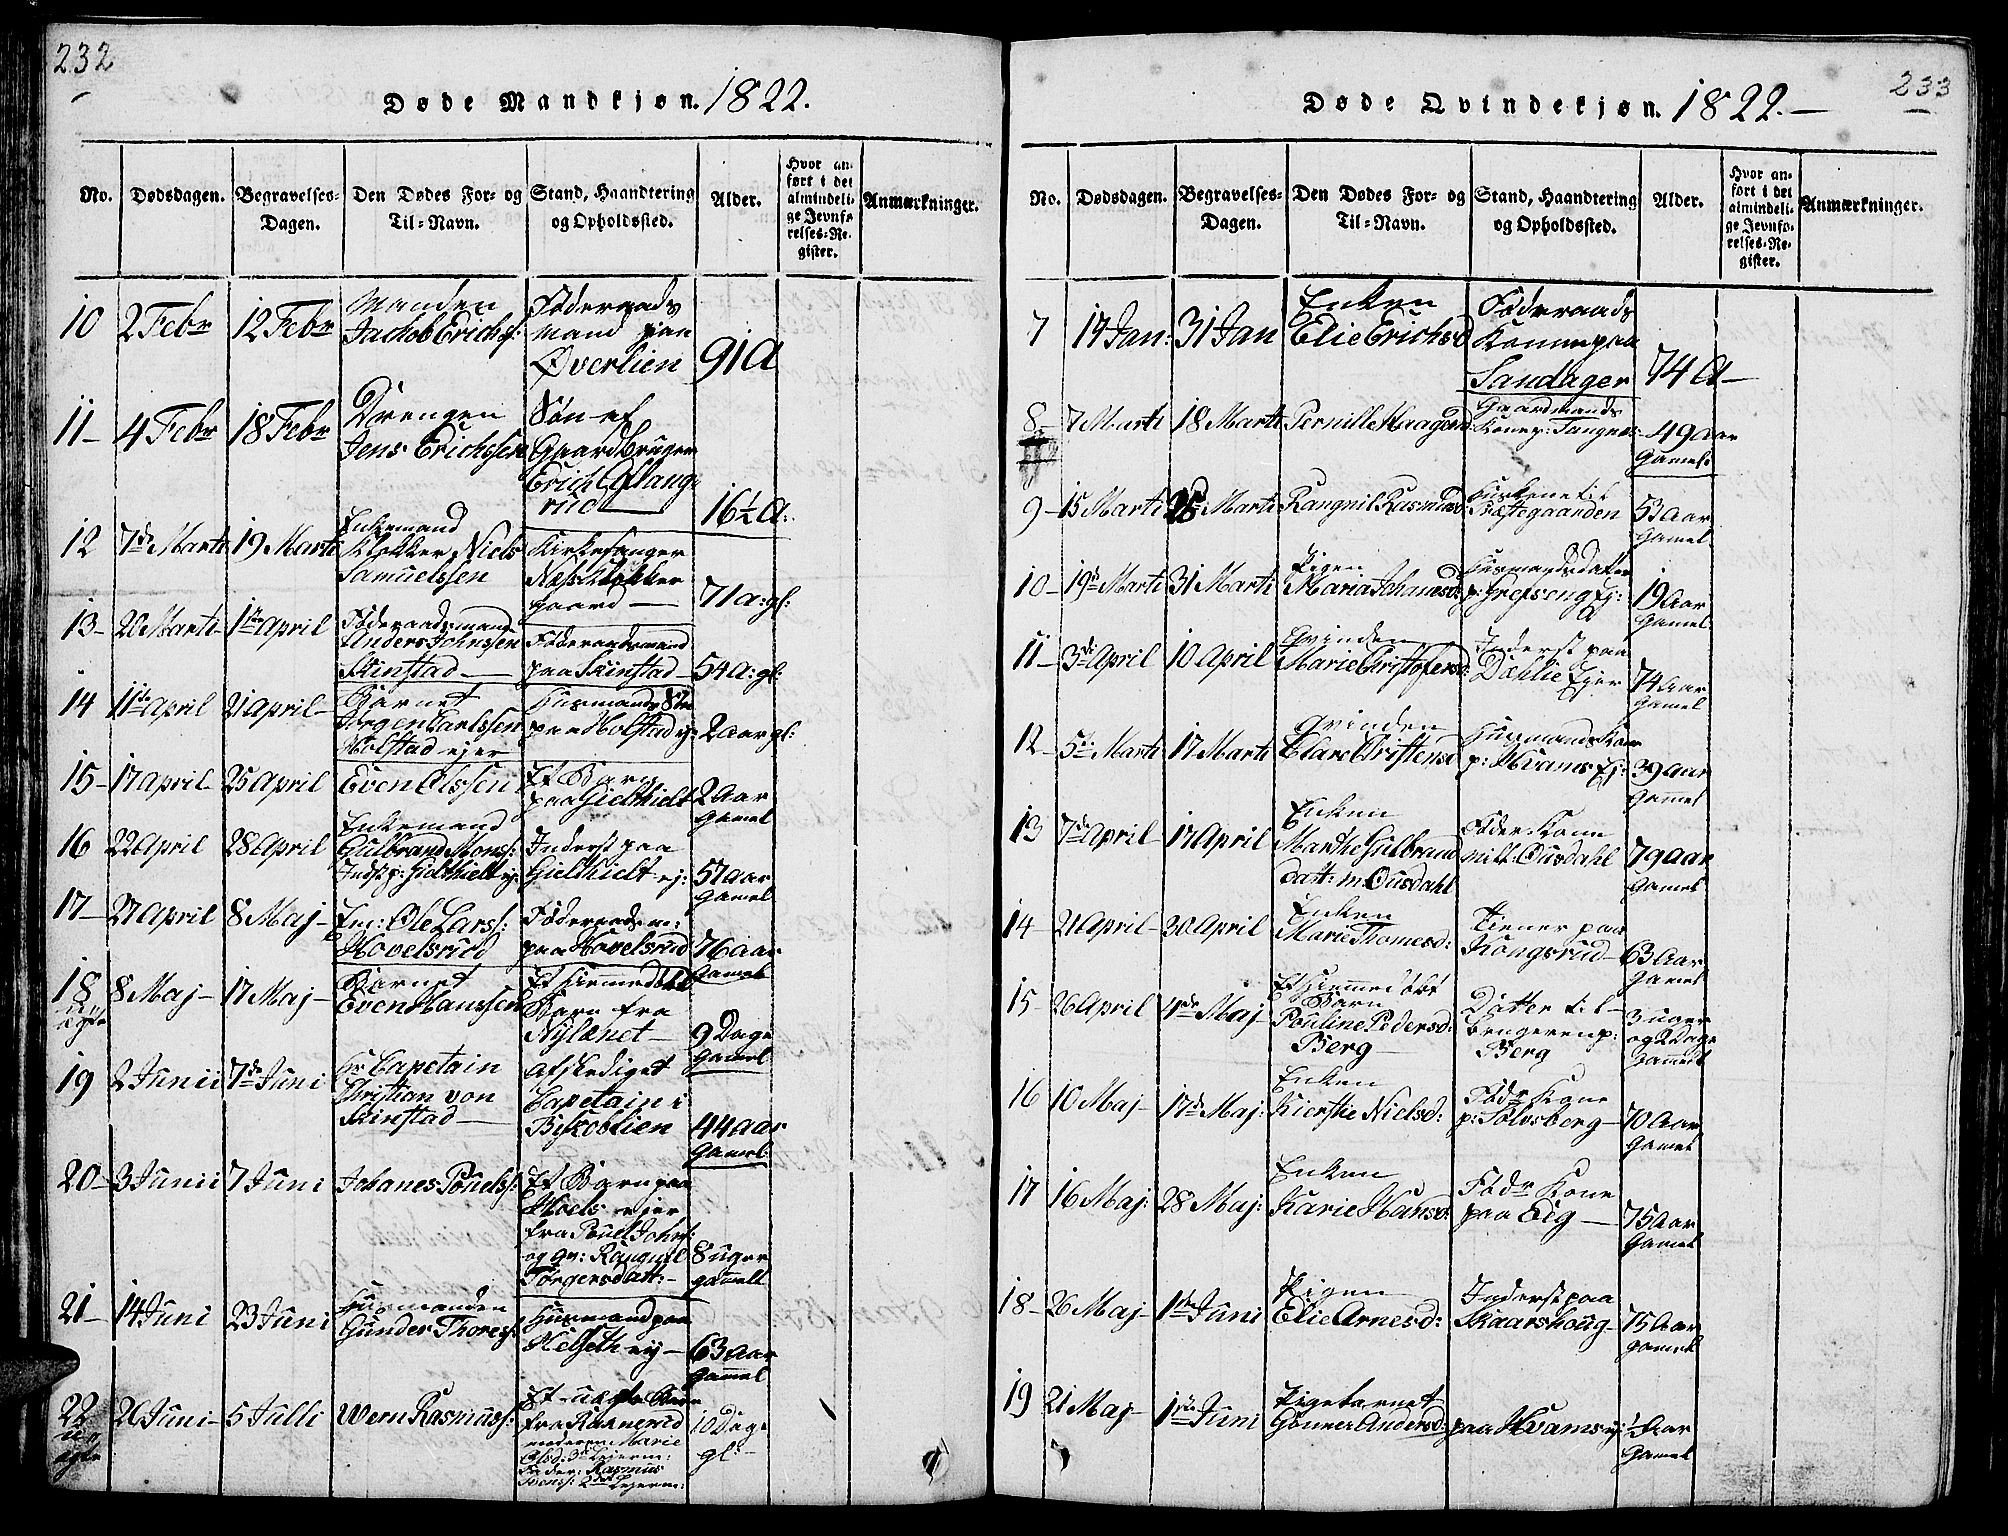 232
Døde Mandkjøn. 1822.
No. Dødsdagen. Begravelses-Dagen. Den Dødes For- og Til-Navn. Stand, Haandtering og Opholdssted. Alder. Hvor anført i det almindelige Jevnførelses-Register. Anmærkninger.
10 2 Febr 12 Febr Manden
Jackob Erichs:
Føderaads
mand paa
Øverlien 91 A
11- 4 Febr 18 Febr Drengen
Jens Erichssen
Søn af
Gaardbruger
Erich
rud 16½ A:
12 7de Marti 19 Marti Enkemand
Klokker Niels
Samuelssen
Kirkesanger
Næss Klokker
gaard 71 a: gl:
13- 20 Marti- 1ste April Føderaadsmand
Anders Johnssen
Skinstad
Føderaadsmand
paa Skinstad 54 A: gl:
14 11te April 21 April- Barnet
Jørgen Carlssen
Holstad ejer
Husmands Søn
paa Holstad ej: 2 Aar gl:
15- 17 April- 25 April Even Olssen
Et Barn
paa Gielthielt 2 Aar
Gamel
16 22 April 28 April Enkemand
Gulbrand Mons:
Indst p: Gielthielt ej:
Inderst paa
Gielthielt ej: 57 Aar
Gamel
17- 27 April 8 Maj- Em: Ole Larss:
Hovelsrud
Føderaads m:
paa Hovelsrud 76 aar
Gamel
18 8 Maj- 17 Maj- Barnet
Even Hanssen
u-
ægte
Et Hiemmedøbt
Barn fra
Nylænet 9 Dage
Gamel
19 2 Junii 7de Juni Hr Capetain
Christian von
Skinstad
Afskediget
Capetain i
Biskoblien 44 aar
Gamel:
20- 3 Junii 7 Juni Johanes Pouels:
Et Barn paa
Hoels ejer
fra Pouel Johns:
og qv: Rangnil
Torgersdatt:- 8 uger
gammelt
21- 14 Juni 23 Juni Husmanden
Gunder Thores:
Husmand paa
Helseth ej- 63 Aar
Gammel
22 26 Juni- 5 Julli Wern Rasmuss:
uægte
Et uægte Barn
fra
moderen Marie
Olsd: 3de Lejerm:
Fader: Rasmus
Svens: 2det Lejerm: 10 Dage
gl:-
233
Døde Qvindekjøn. 1822.-
No. Dødsdagen. Begravelses-Dagen. Den Dødes For- og Til-Navn. Stand, Haandtering og Opholdssted. Alder. Hvor anført i det almindelige Jevnførelses-Register. Anmærkninger.
7 14 Jan: 31 Jan Enken
Elie Erichsd
Føderaads
Konne paa
Sandager 74 A-
8- 7 Marti 18 Marti Pernille Haagensd
Gaardmands
Kone p: Tangnes 49 Aar
Gamel:
9- 15 Marti Marti Rangnil Rasmusd
til
Præstgaarden 53 Aar
Gamel
10- 19de Marti 31 Marti Pigen
Maria Johannesd:
Husmandsdatter
p: Grefseng Ej: 19 Aar
Gamel
11- 3de April 10 April Qvinden
Marie Christofersd:
Inderst paa
Dæhlie Ejer 74 Aar
Gamel
12- 5te Marti 17 Marti Qvinden
Christensd
Husmands Kone
p: Hvams Ej: 39 Aar
Gammel
13 7de April- 17 April Enken
Marthe Gulbrand
datt: m: Ousdahl
Føder Kone
mitt: Ousdahl 79 aar
Gamel
14- 21 April- 30 April Enken
Marie Thomesd:
Tiener paa
Kongsrud- 63 Aar
Gamel
15- 26 April 4de Maj- Et Hiemmedøbt
Barn
Pouline Pedersd:
Berg-
Datter til
brugeren p:
Berg 3 uger
og 2 Dage
Gammelt
16 10 Maj- 17de Maj: Enken
Kierstie Nielsd:
Fødr Kone
p: Solvsberg- 70 Aar
Gamel
17 16 Maj: 28 Maj: Enken
Karie Hansd:
Fødr Kone
paa Eeg- 75 Aar
Gamel
18- 26 Maj- 1ste Juni Pigen
Elie Arnesd:
Inderst paa
Skaarshoug- 75 Aar
gamel
19 21 Maj- 1ste Juni Pigebarnet
Gunner Andersd:
paa Hvams ej: Aar
Gamel